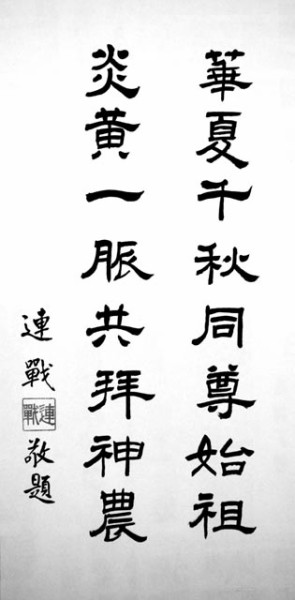 華夏千秋同尊始祖
炎黃一脈共拜神農
連戰
連戰
敬題